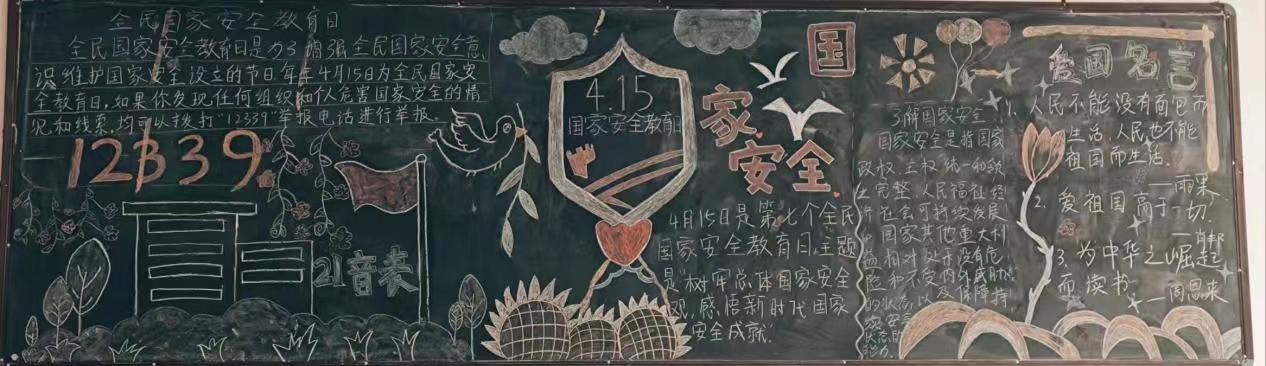 全民国家安全教育日
全民国家安全教育日是为了增强全民国家安全意
识,维护国家安全设立的节日.每年4月15日为全民国家安
全教育日,如果你发现任何组织和个人危害国家安全的情
况和线索,均可以拨打"12339"举报电话进行举报.
12339
21音表
4.15
国家安全教育日
国
家
安全
4月15日是第七个全民
国家安全教育日,主题
是"树牢总体国家安全
观,感悟新时代国家
安全成就."
了解国家安全
国家安全是指国家
政权.主权.统一和领
土完整.人民福祉.经
济社会可持续发展
和国家其他重大利
益相对处于没有危
险和不受内外威胁
的状态,以及保障持
续安全
状态的
能力.
爱国名言
1.人民不能没有面包而
生活,人民也不能
祖国而生活.
——雨果
2.爱祖国高于一切.
——肖邦
3.为中华之崛起
而读书
——周恩来